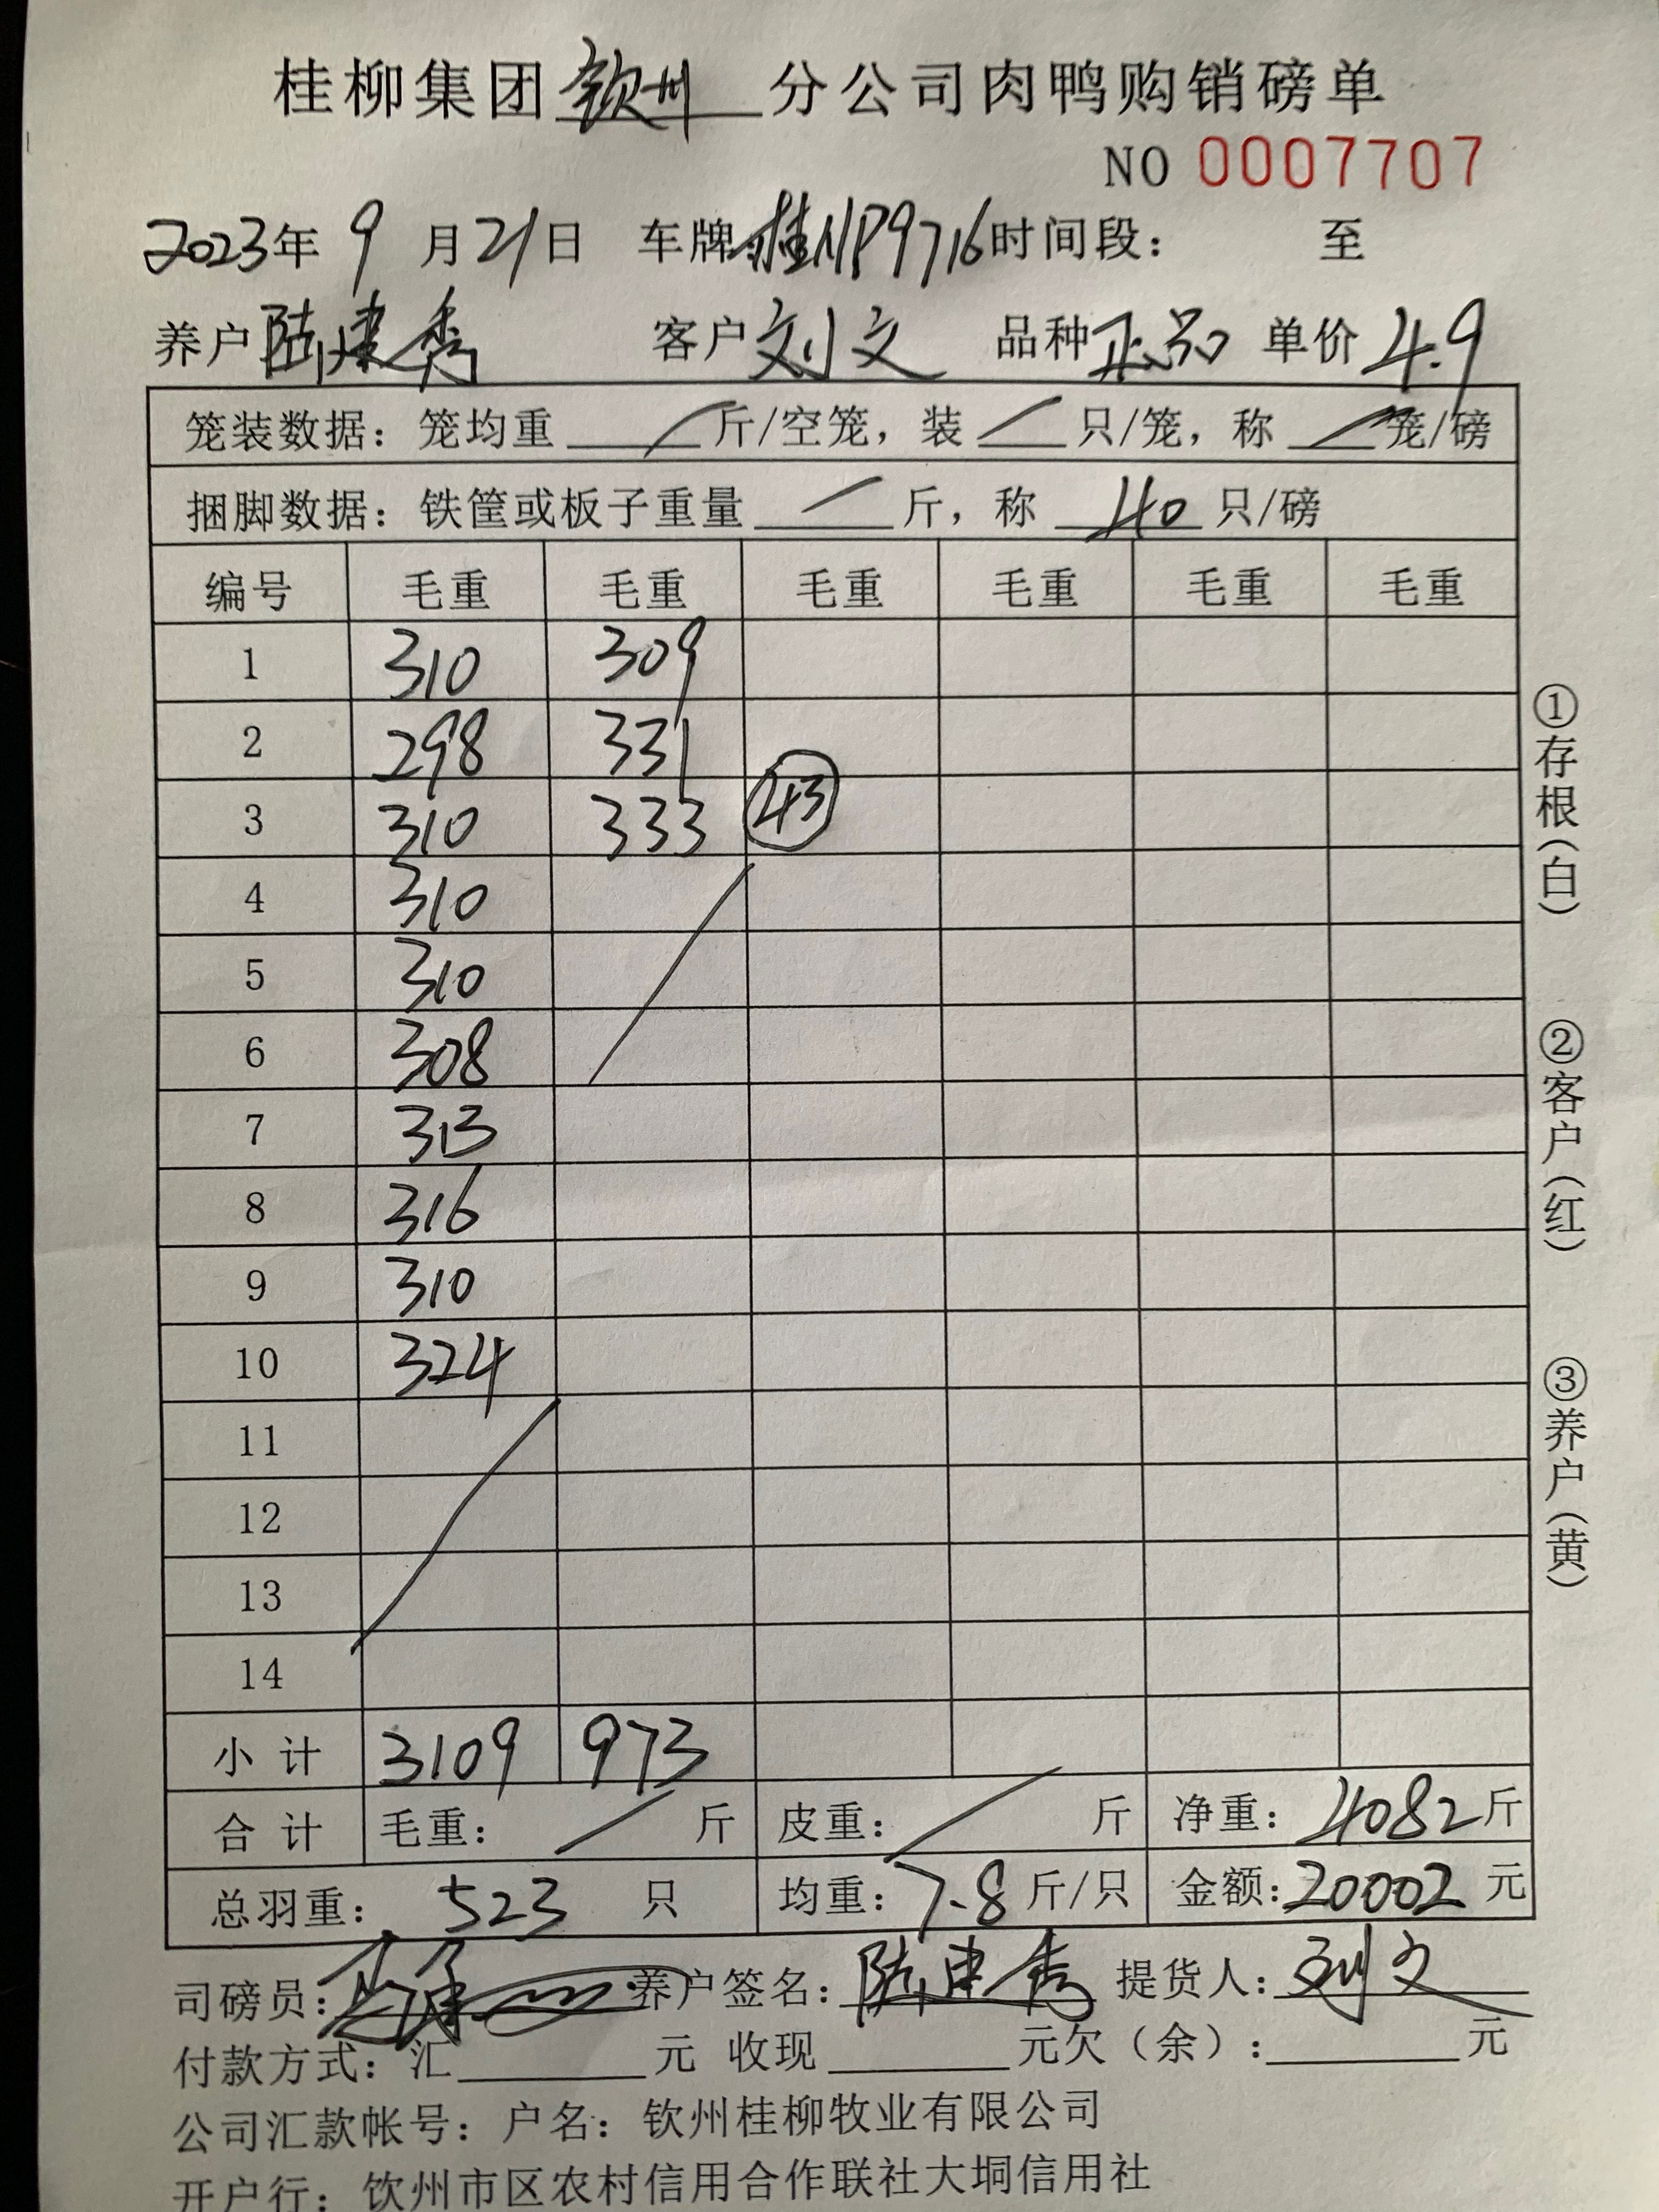 桂柳集团钦州分公司肉鸭购销磅单
NO 0007707
2023年 9 月 21日 车牌:桂NP9716 时间段: 至
养户 陆建秀 客户 刘文 品种 正品 单价 4.9
笼装数据:笼均重 / 斤/空笼,装 / 只/笼,称 / 笼/磅
捆脚数据:铁筐或板子重量 / 斤,称 40 只/磅
编号 毛重 毛重 毛重 毛重 毛重 毛重
1 310 309
2 298 331
3 310 333 43
4 310
5 310
6 308
7 313
8 316
9 310
10 324
11
12
13
14
小计 3109 973
合计 毛重: / 斤 皮重: / 斤 净重: 4082斤
总羽重: 523 只 均重: 7.8 斤/只 金额: 20002 元
司磅员: 养户签名: 陆建秀 提货人: 刘文
付款方式:汇 元 收现 元欠(余): 元
公司汇款帐号:户名:钦州桂柳牧业有限公司
开户行:钦州市区农村信用合作联社大垌信用社
①存根(白)
②客户(红)
③养户(黄)